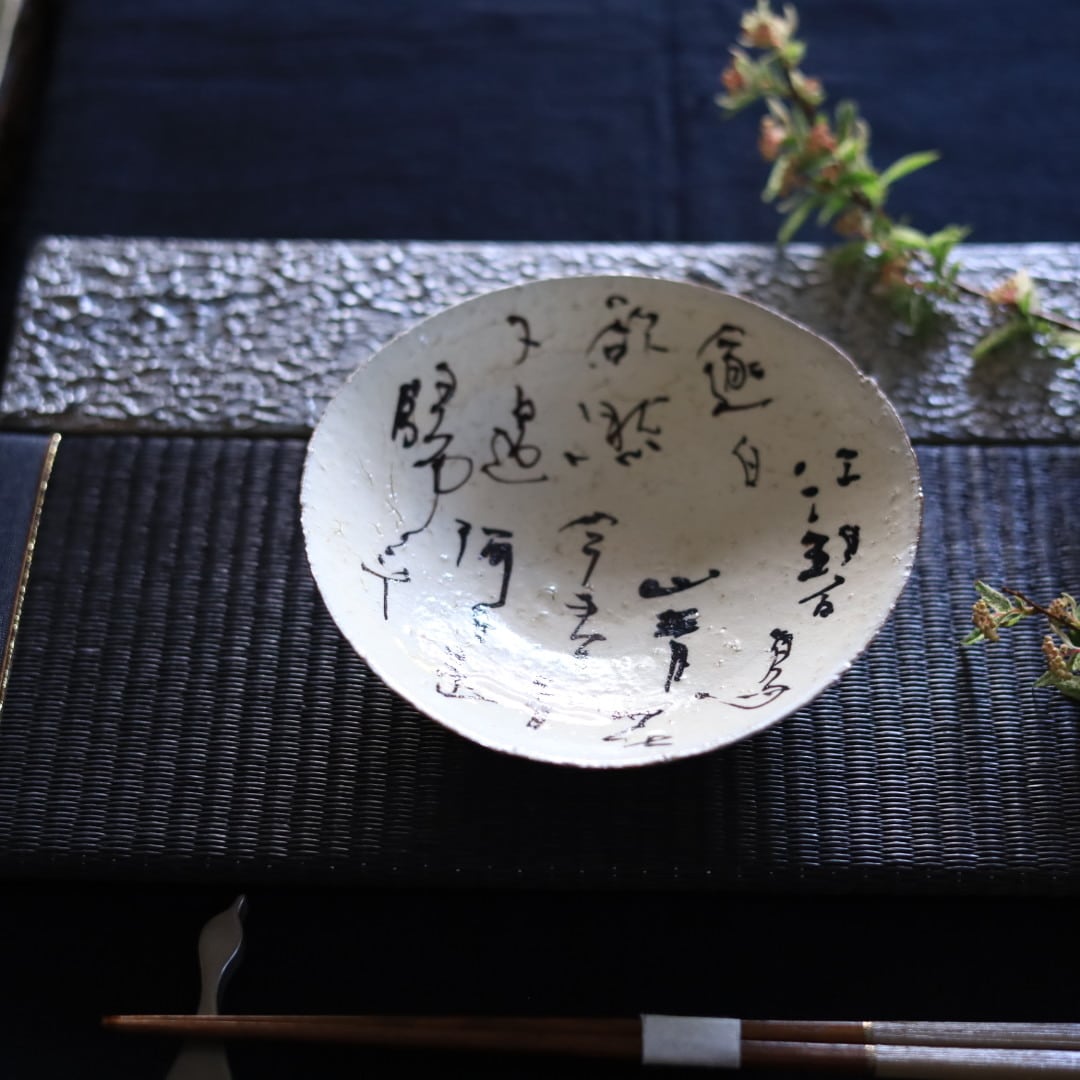 江碧鳥
逾白
山青花
欲然
今春看
又過
何日是
歸年